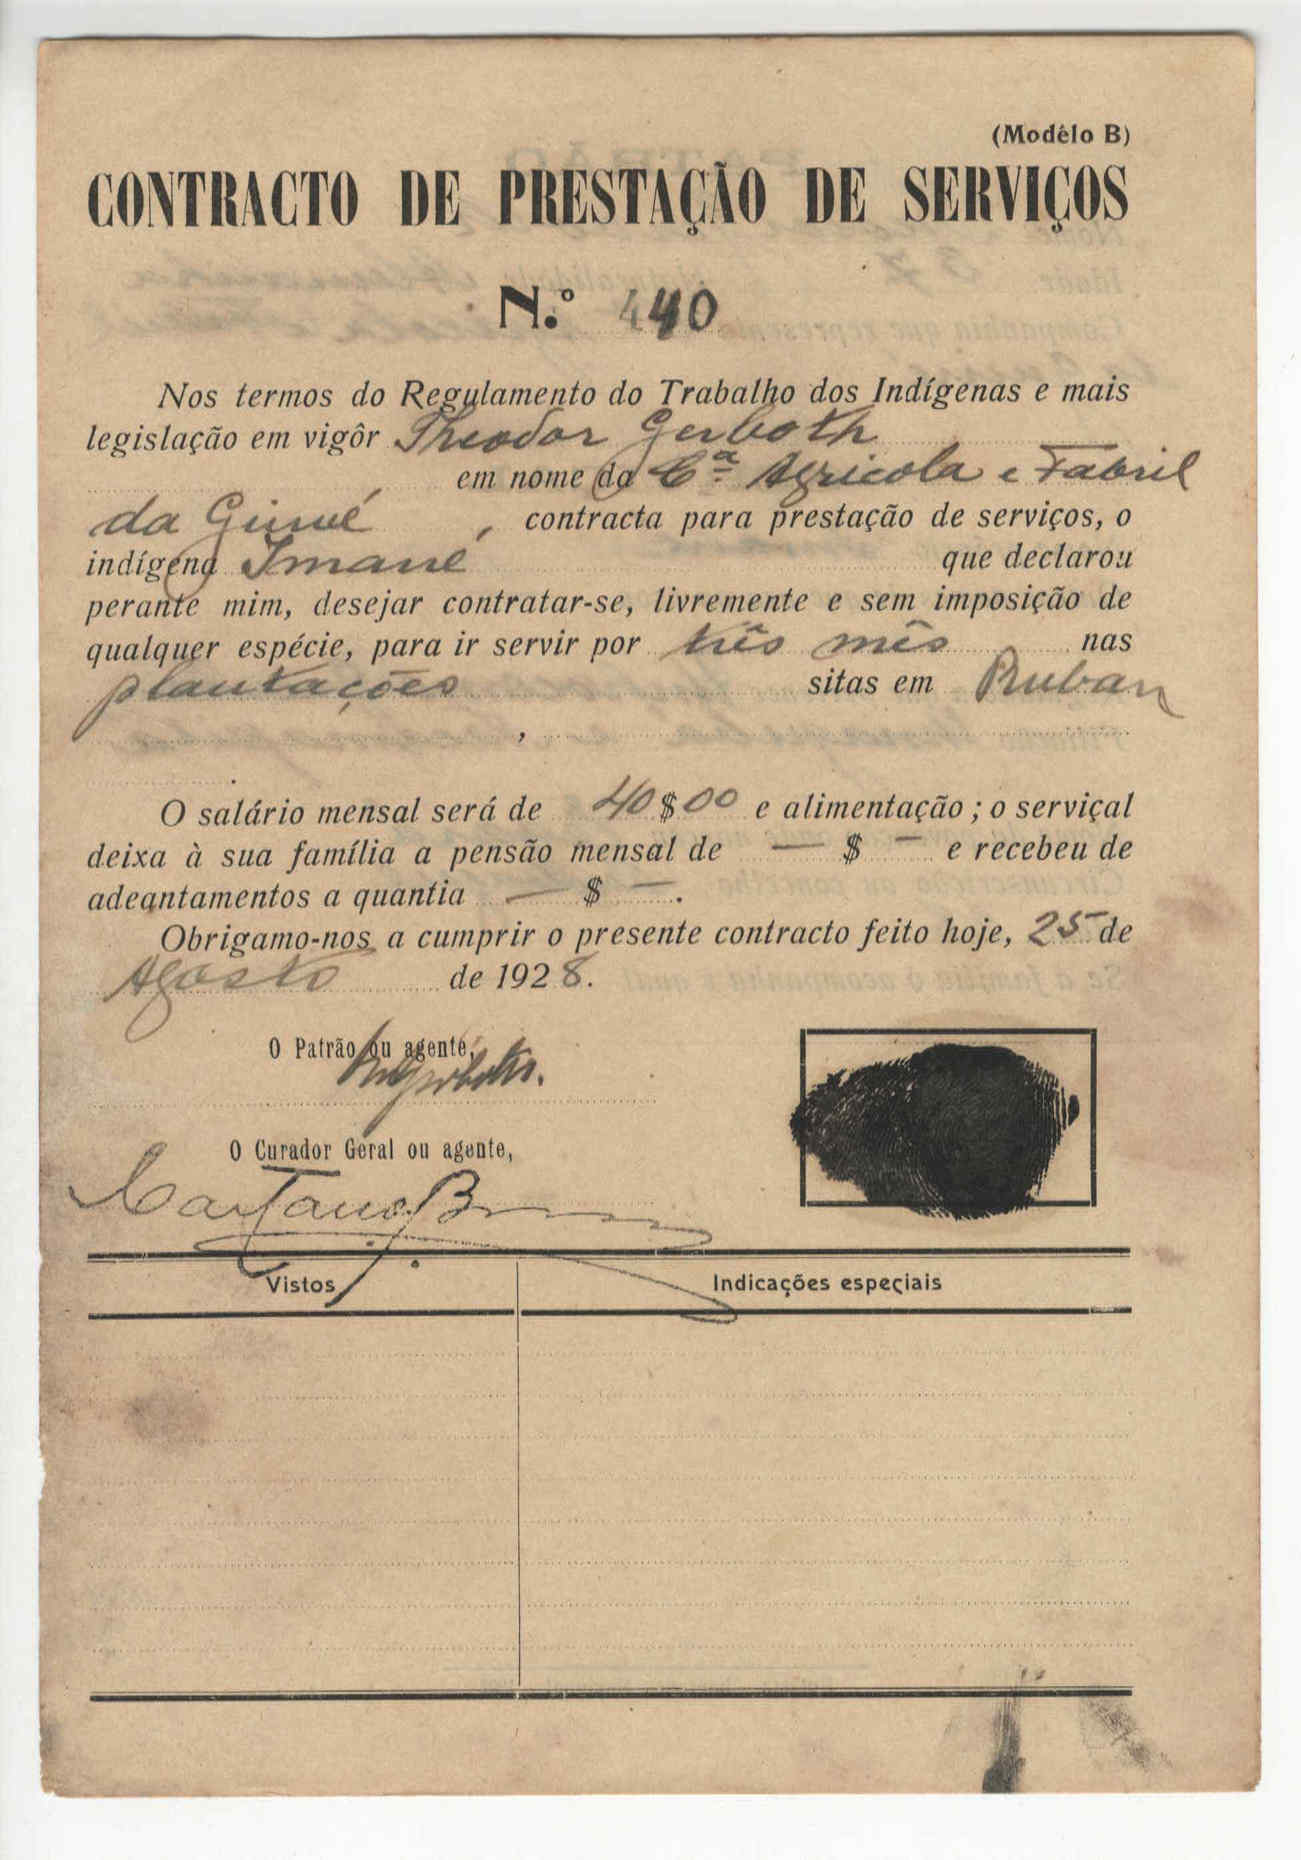 (Modêlo B)
CONTRACTO DE PRESTAÇÃO DE SERVIÇOS
N.º 440
Nos termos do Regulamento do Trabalho dos Indígenas e mais
legislação em vigôr Theodor Gerboth
em nome da C.ª Agricola e Fabril
da Guiné, contracta para prestação de serviços, o
indígena Imané que declarou
perante mim, desejar contratar-se, livremente e sem imposição de
qualquer espécie, para ir servir por três mês nas
plantações sitas em Ruban
O salário mensal será de 40$00 e alimentação; o serviçal
deixa à sua família a pensão mensal de — $ — e recebeu de
adeantamentos a quantia — $ —.
Obrigamo-nos a cumprir o presente contracto feito hoje, 25 de
Agosto de 1928.
O Patrão ou agente,
O Curador Geral ou agente,
Caetano
Vistos
Indicações especiais